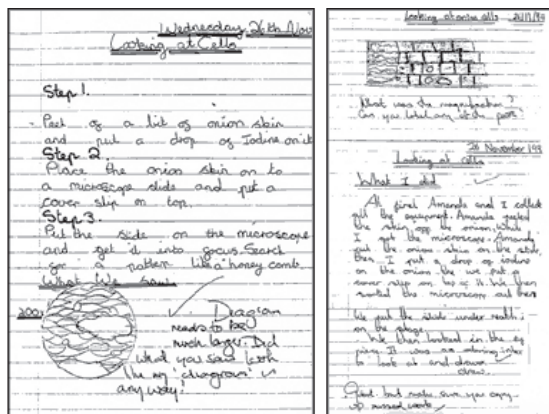 Wednesday 26th Nov
Looking at Cells
Step 1.
Peel of a bit of onion skin
and put a drop of Iodine on it
Step 2.
Place the onion skin on to
a microscope slide and put a
cover slip on top.
Step 3.
Put the slide on the microscope
and get it into focus. Search
for a pattern like a honey comb.
What We Saw.
200x
Diagram
needs to be
much larger. Did
what you saw look
like my 'diagram' in
any way?
Looking at onion cells
What was the magnification?
Can you label any of the parts
26 November
Looking at cells
What I did
At first Amanda and I collect
all the equipment. Amanda peeled
the skin off the onion. While
I got the microscope. Amanda
put the onion skin on the slide,
then I put a drop of iodine
on the onion the we put a
cover slip on top of it. We then
the microscope out then
We put the slide under
on the stage.
We then looked in the eye
piece. It was
to look at and draw.
draw.
Good but make sure you copy
up missed work